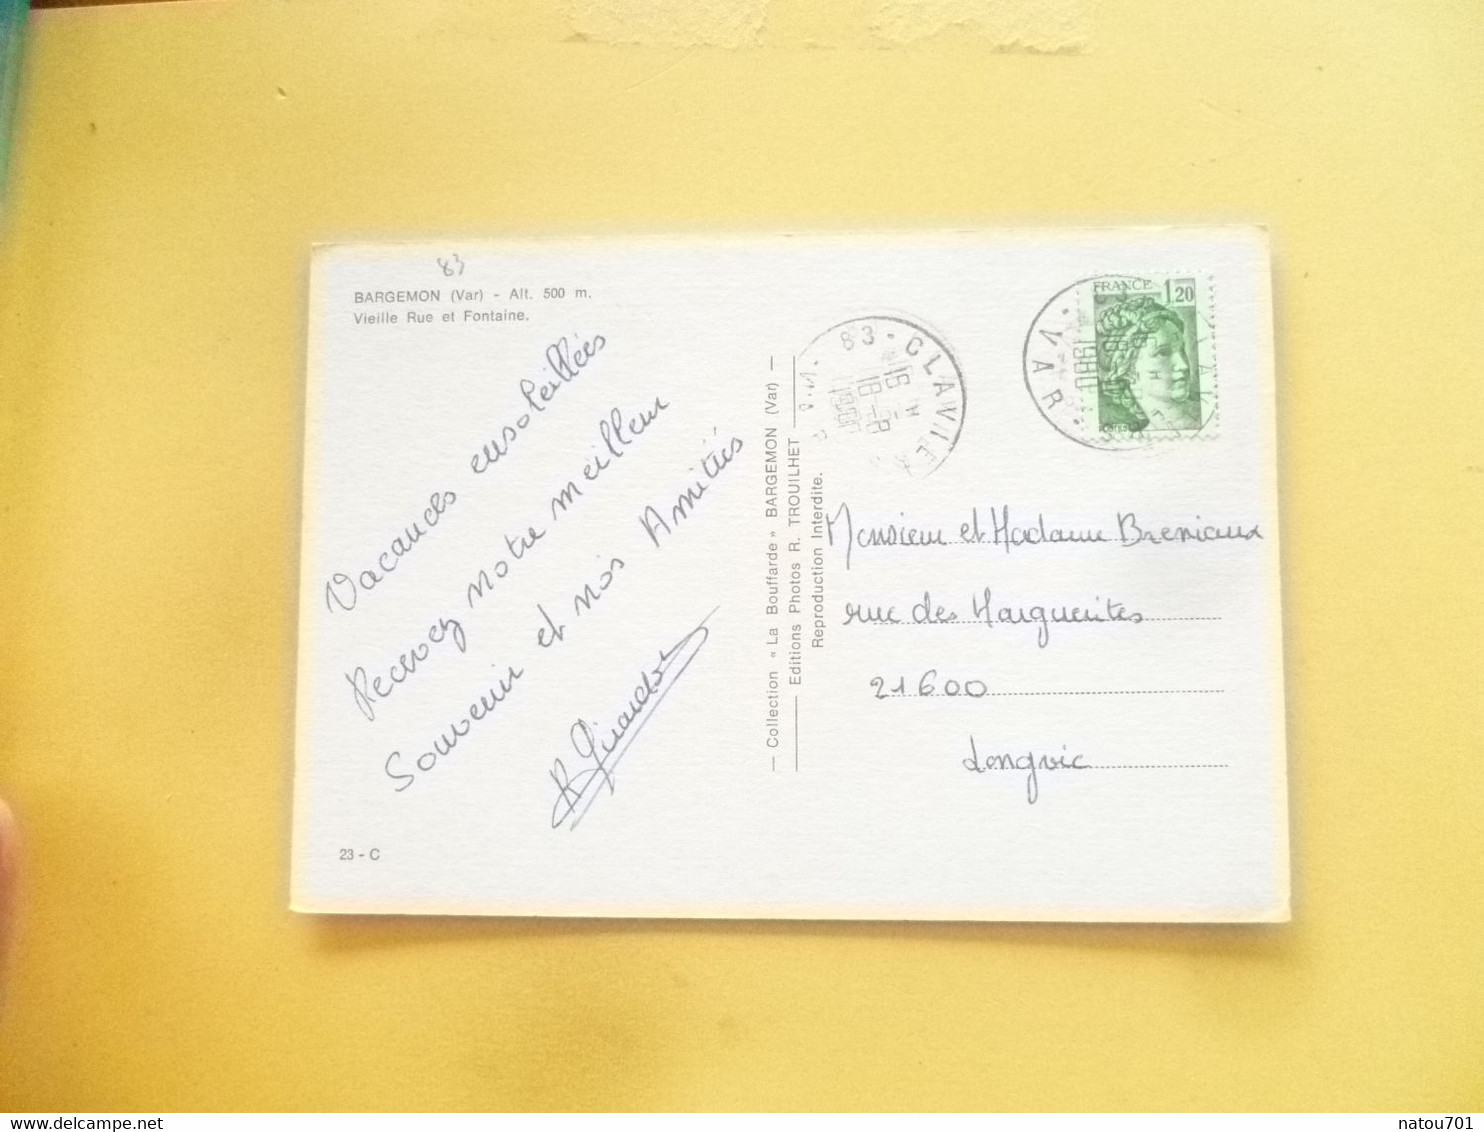 83
BARGEMON (Var) - Alt. 500 m.
Vieille Rue et Fontaine.
Vacances ensoleillées
Recevez notre meilleur
Souvenir et nos Amitiés
R Girardot
23 - C
— Collection « La Bouffarde » BARGEMON (Var) —
Editions Photos R. TROUILHET
Reproduction Interdite.
83 - CLAVIER
16 H
18 - 8
1980
VAR
1980
FRANCE 1,20
Monsieur et Madame Breniaux
rue des Marguerites
21600
Longvic
natou701